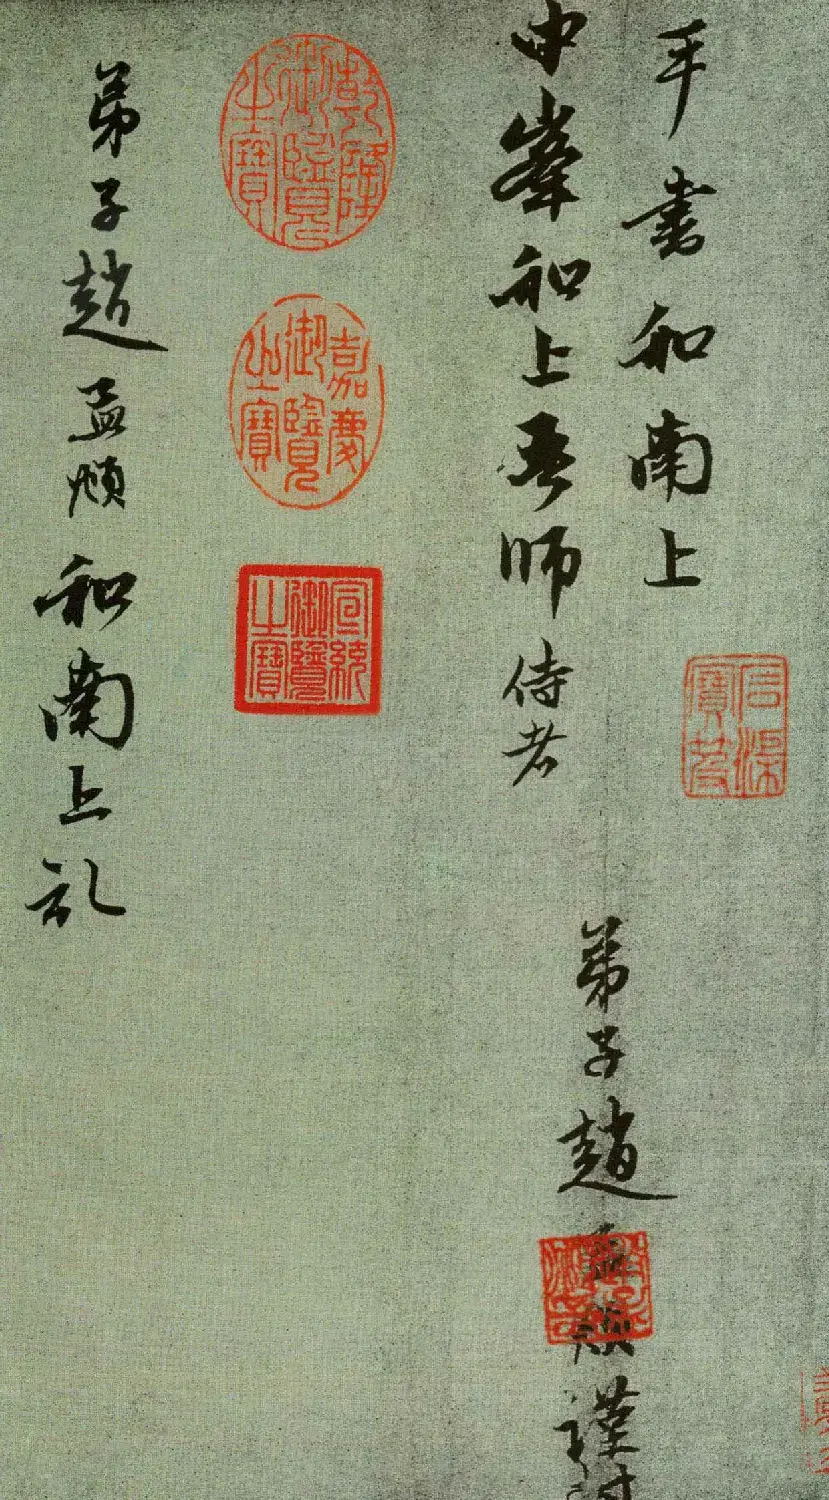 手書和南上
中峯和上吾師侍者
弟子趙孟頫謹封
乾隆御覽之寶
嘉慶御覽之寶
宣統御覽之寶
弟子趙孟頫和南上記